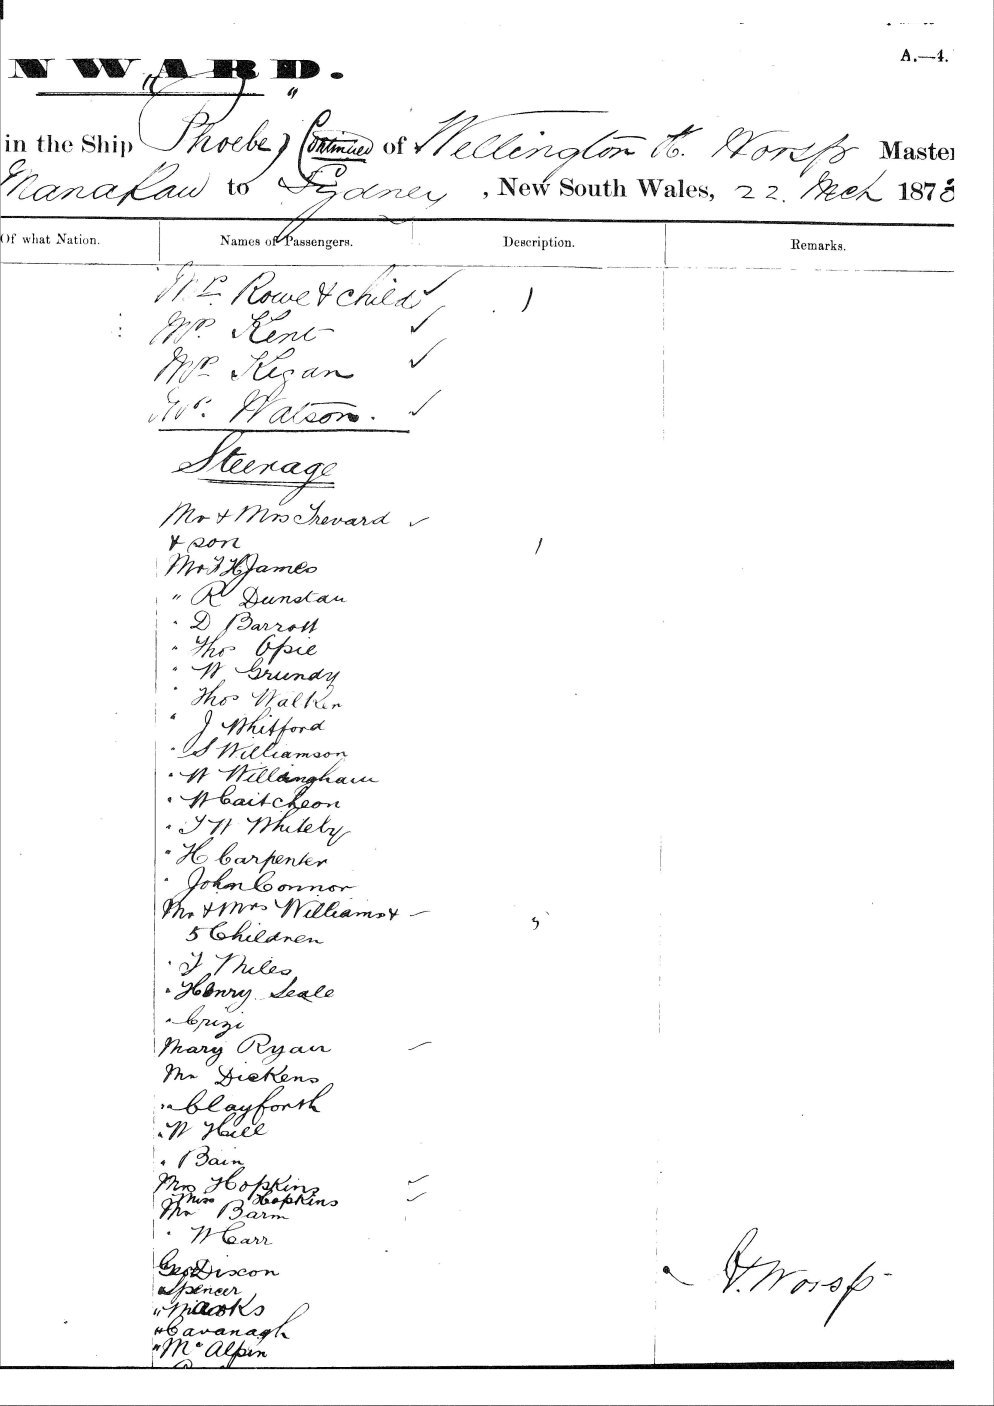 A.—4.
NWARD.
" "
in the Ship Phoebe) (Continued of Wellington H. Worsp Master
Manakau to Sydney, New South Wales, 22. Mch 1878
Of what Nation. Names of Passengers. Description. Remarks.
Rowe & child ✓ 1
Mr. Kent ✓
Mr. Kegan ✓
Watson. ✓
Steerage
Mr & Mrs Trevard ✓
& son 1
Mr F H James
" R Dunstan
" D Barrott
" Thos Opie
" W Grundy
" Thos Walker
" J Whitford
" S Williamson
" W Willingham
" W Caitcheon
" T W Whiteby
" H Carpenter
" John Connor
Mr & Mrs Williams & 5
5 Children
" T Miles
" Henry Seale
" Crizi
Mary Ryan
Mr Dickens
" Clayforth
" W Hill
" Bain
Mrs Hopkins ✓
Miss Hopkins ✓
Mr Barm
" W Carr
Geo Dixon
" Spencer
" Marks
" Cavanagh
" McAlpin
H. Worsp